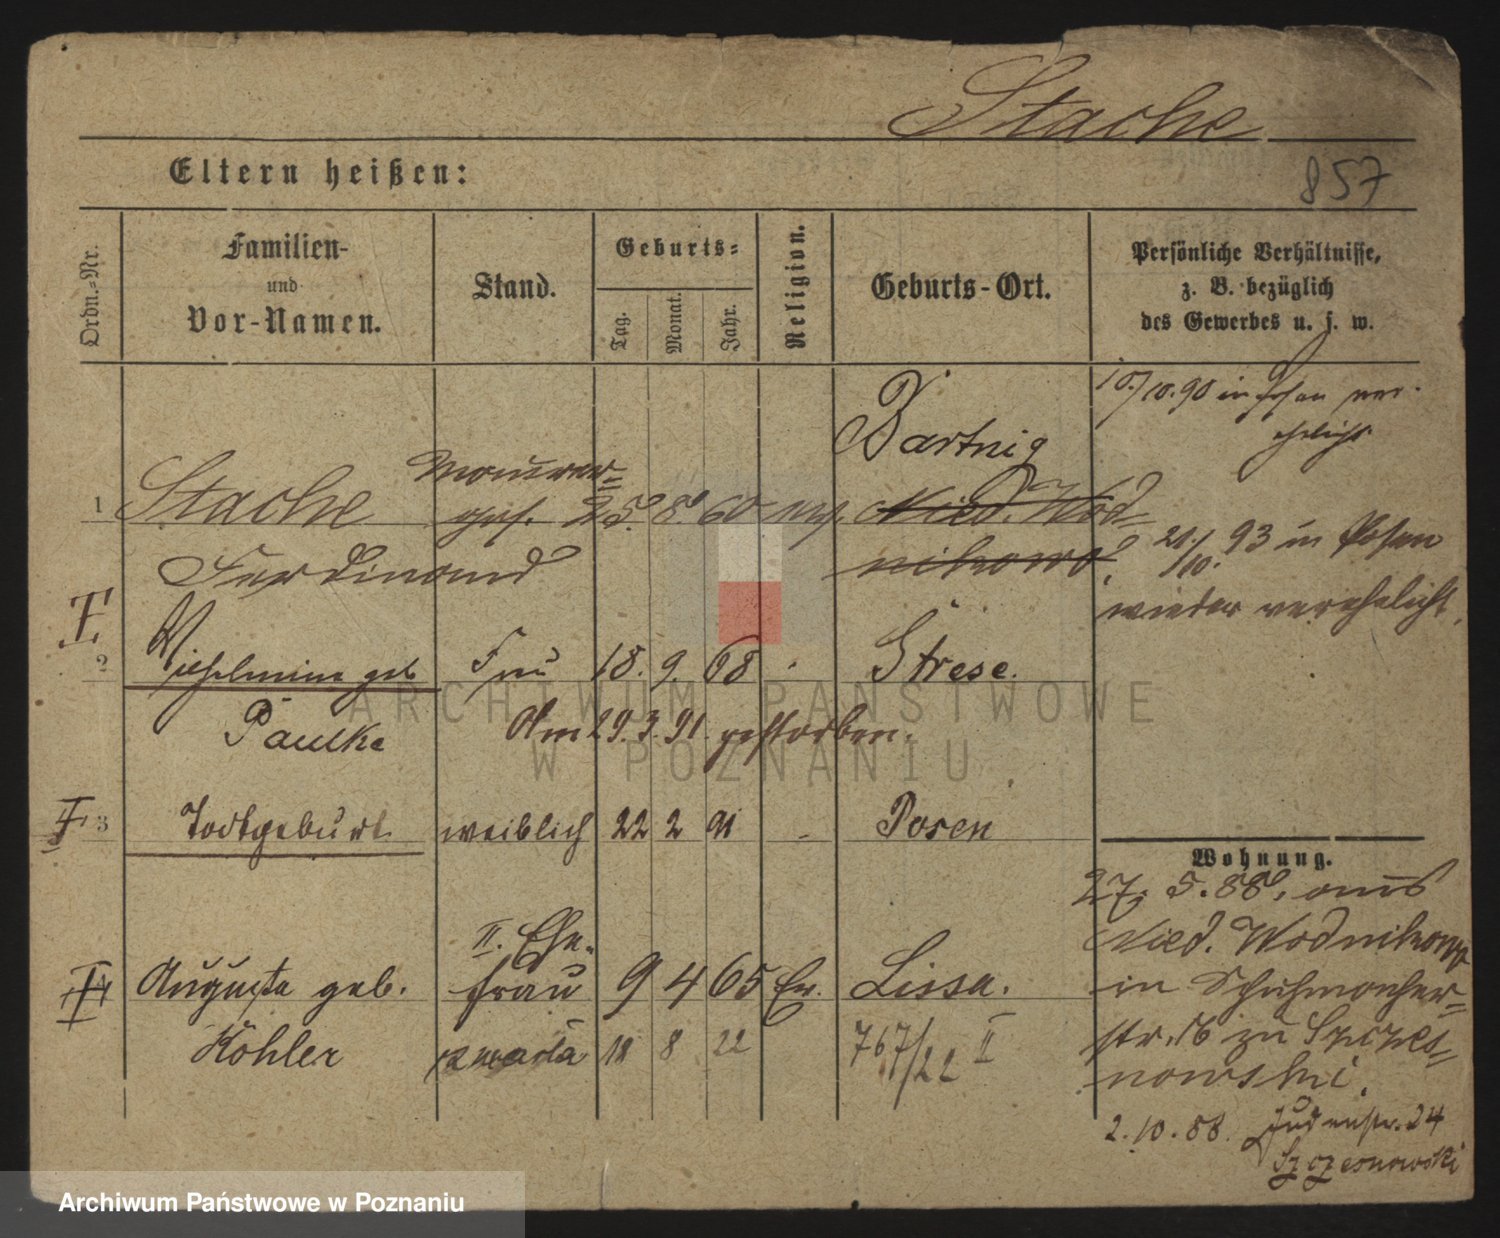 Stache
857
Eltern heißen:
Ordn.-Nr.
Familien-
und
Vor-Namen.
Stand.
Geburts-
Tag.
Monat.
Jahr.
Religion.
Geburts-Ort.
Persönliche Verhältnisse,
z. B. bezüglich
des Gewerbes u. s. w.
10./10. 90 in Posen ver-
ehelicht
Bartnig
1 Stache Maurer-
ges. 25. 8. 60 Nied. Wod-
Ferdinand nikowo
21./10. 93 in Posen
wieder verehelicht,
I
2 Wilhelmine geb Frau 18. 9. 68 Strese.
Paulke Am 29.3.91. gestorben.
I 3 Todtgeburt weiblich 22 2 91 - Posen
Wohnung.
27. 5. 88. aus
Nied. Wodnikowo
in Schuhmacher-
str. 16 zu Szczes-
nowski.
II. Ehe-
Auguste geb. frau 9 4 65 Ev. Lissa.
Köhler zmarła 18 8 22 767/22 II
2. 10. 88. Judenstr. 24
Szczesnowski
ARCHIWUM PAŃSTWOWE
W POZNANIU
Archiwum Państwowe w Poznaniu